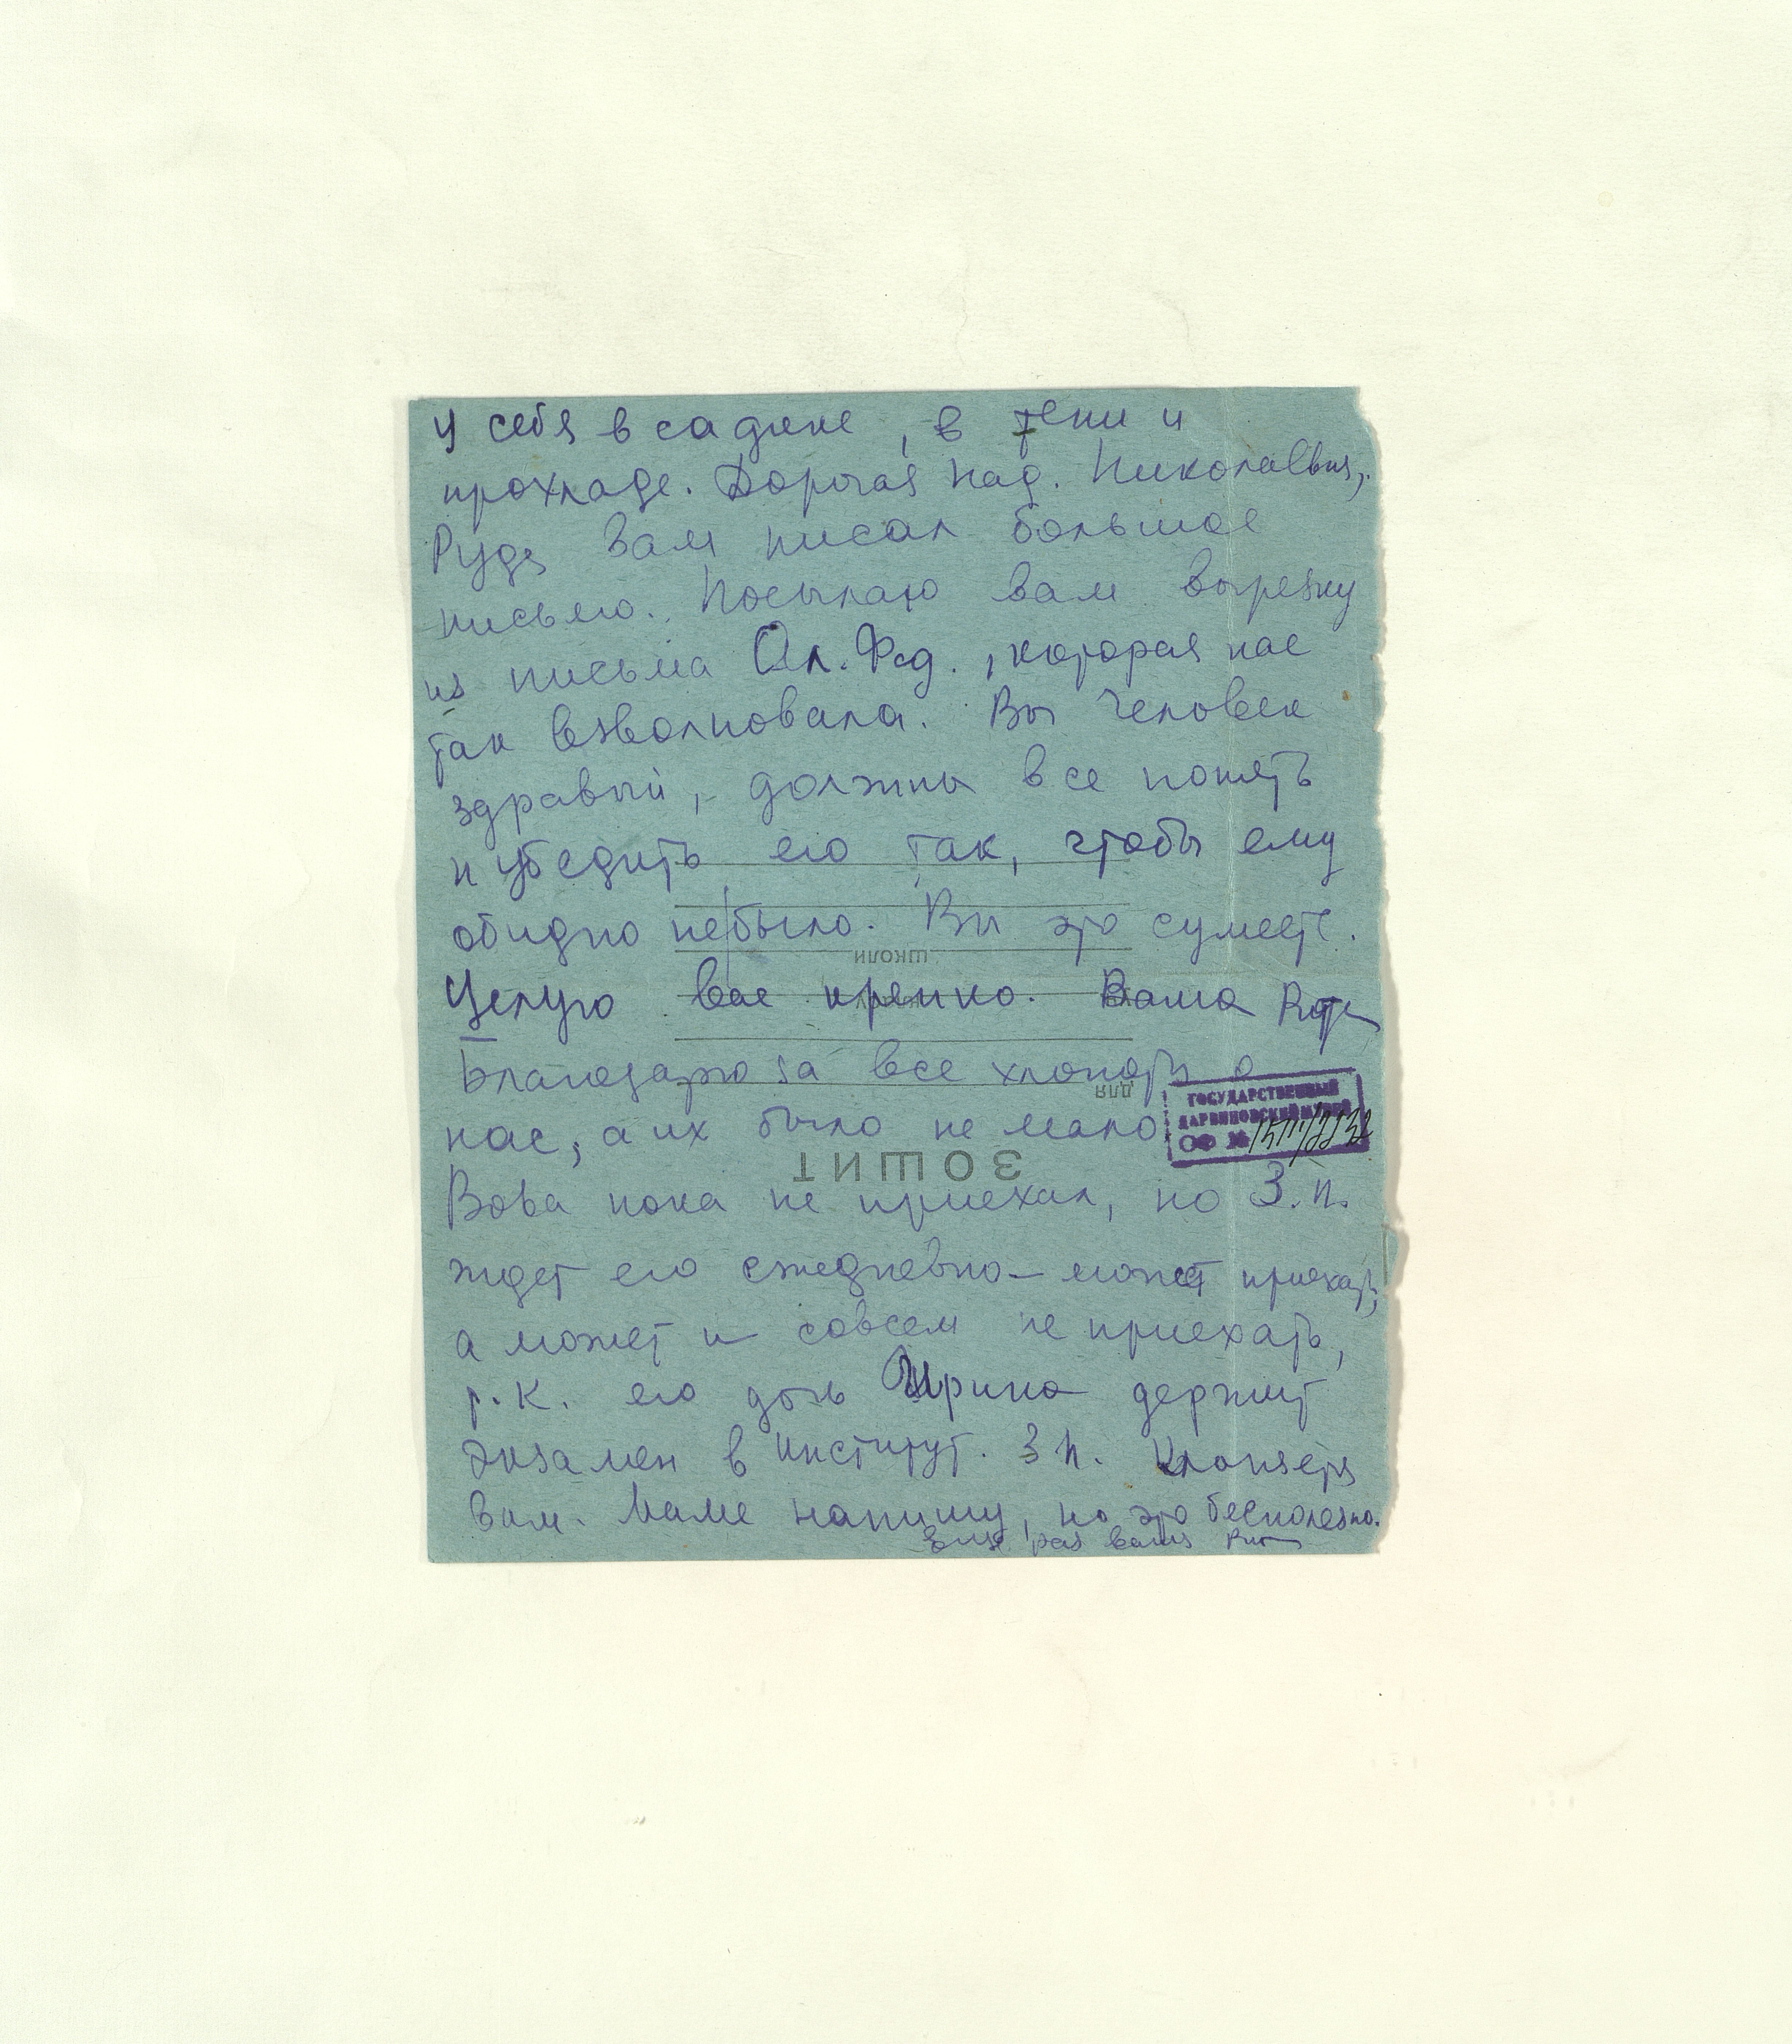 у себя в садике, в тени и
прохладе. Дорогая Над. Николаевна,
Рудя вам писал большое
письмо. Посылаю вам вырезку
из письма Ол. Фед., которая нас
так взволновала. Вы человек
здравый, должны все понять
и убедить его так, чтобы ему
обидно небыло. Вы это сумеете.
школи
Целую вас крепко. Ваша
Благодарю за все хлопоты о
для
нас, а их было не мало
ГОСУДАРСТВЕННЫЙ
ДАРВИНОВСКИЙ МУЗЕЙ
ОФ №
ЗОШИТ
Вова пока не приехал, но З.П.
ждет его ежедневно – может приехать,
а может и совсем не приехать,
т.к. его дочь Ирина держит
экзамен в институт. З П. кланяется
вам. Маме напишу, но это бесполезно.
Еще раз ваша